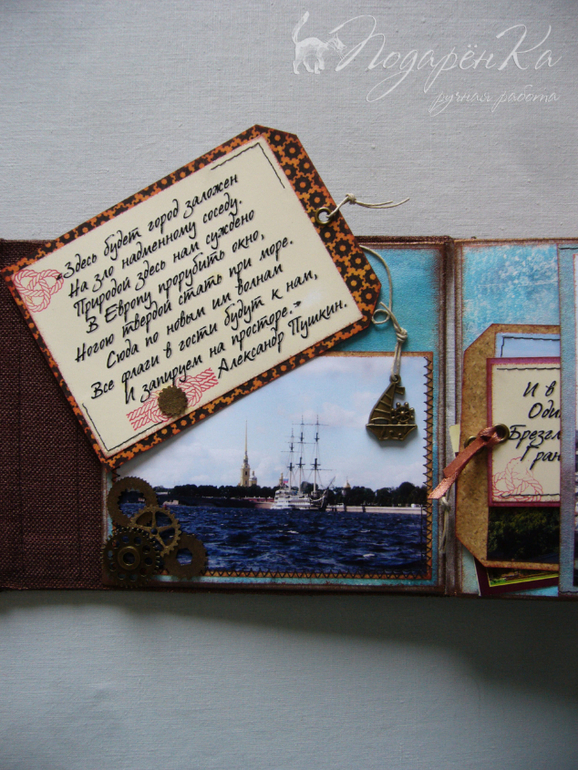 ПодарёнКа
ручная работа
«Здесь будет город заложен
На зло надменному соседу.
Природой здесь нам суждено
В Европу прорубить окно,
Ногою твердой стать при море.
Сюда по новым им волнам
Все флаги в гости будут к нам,
И запируем на просторе.»
Александр Пушкин.
И в